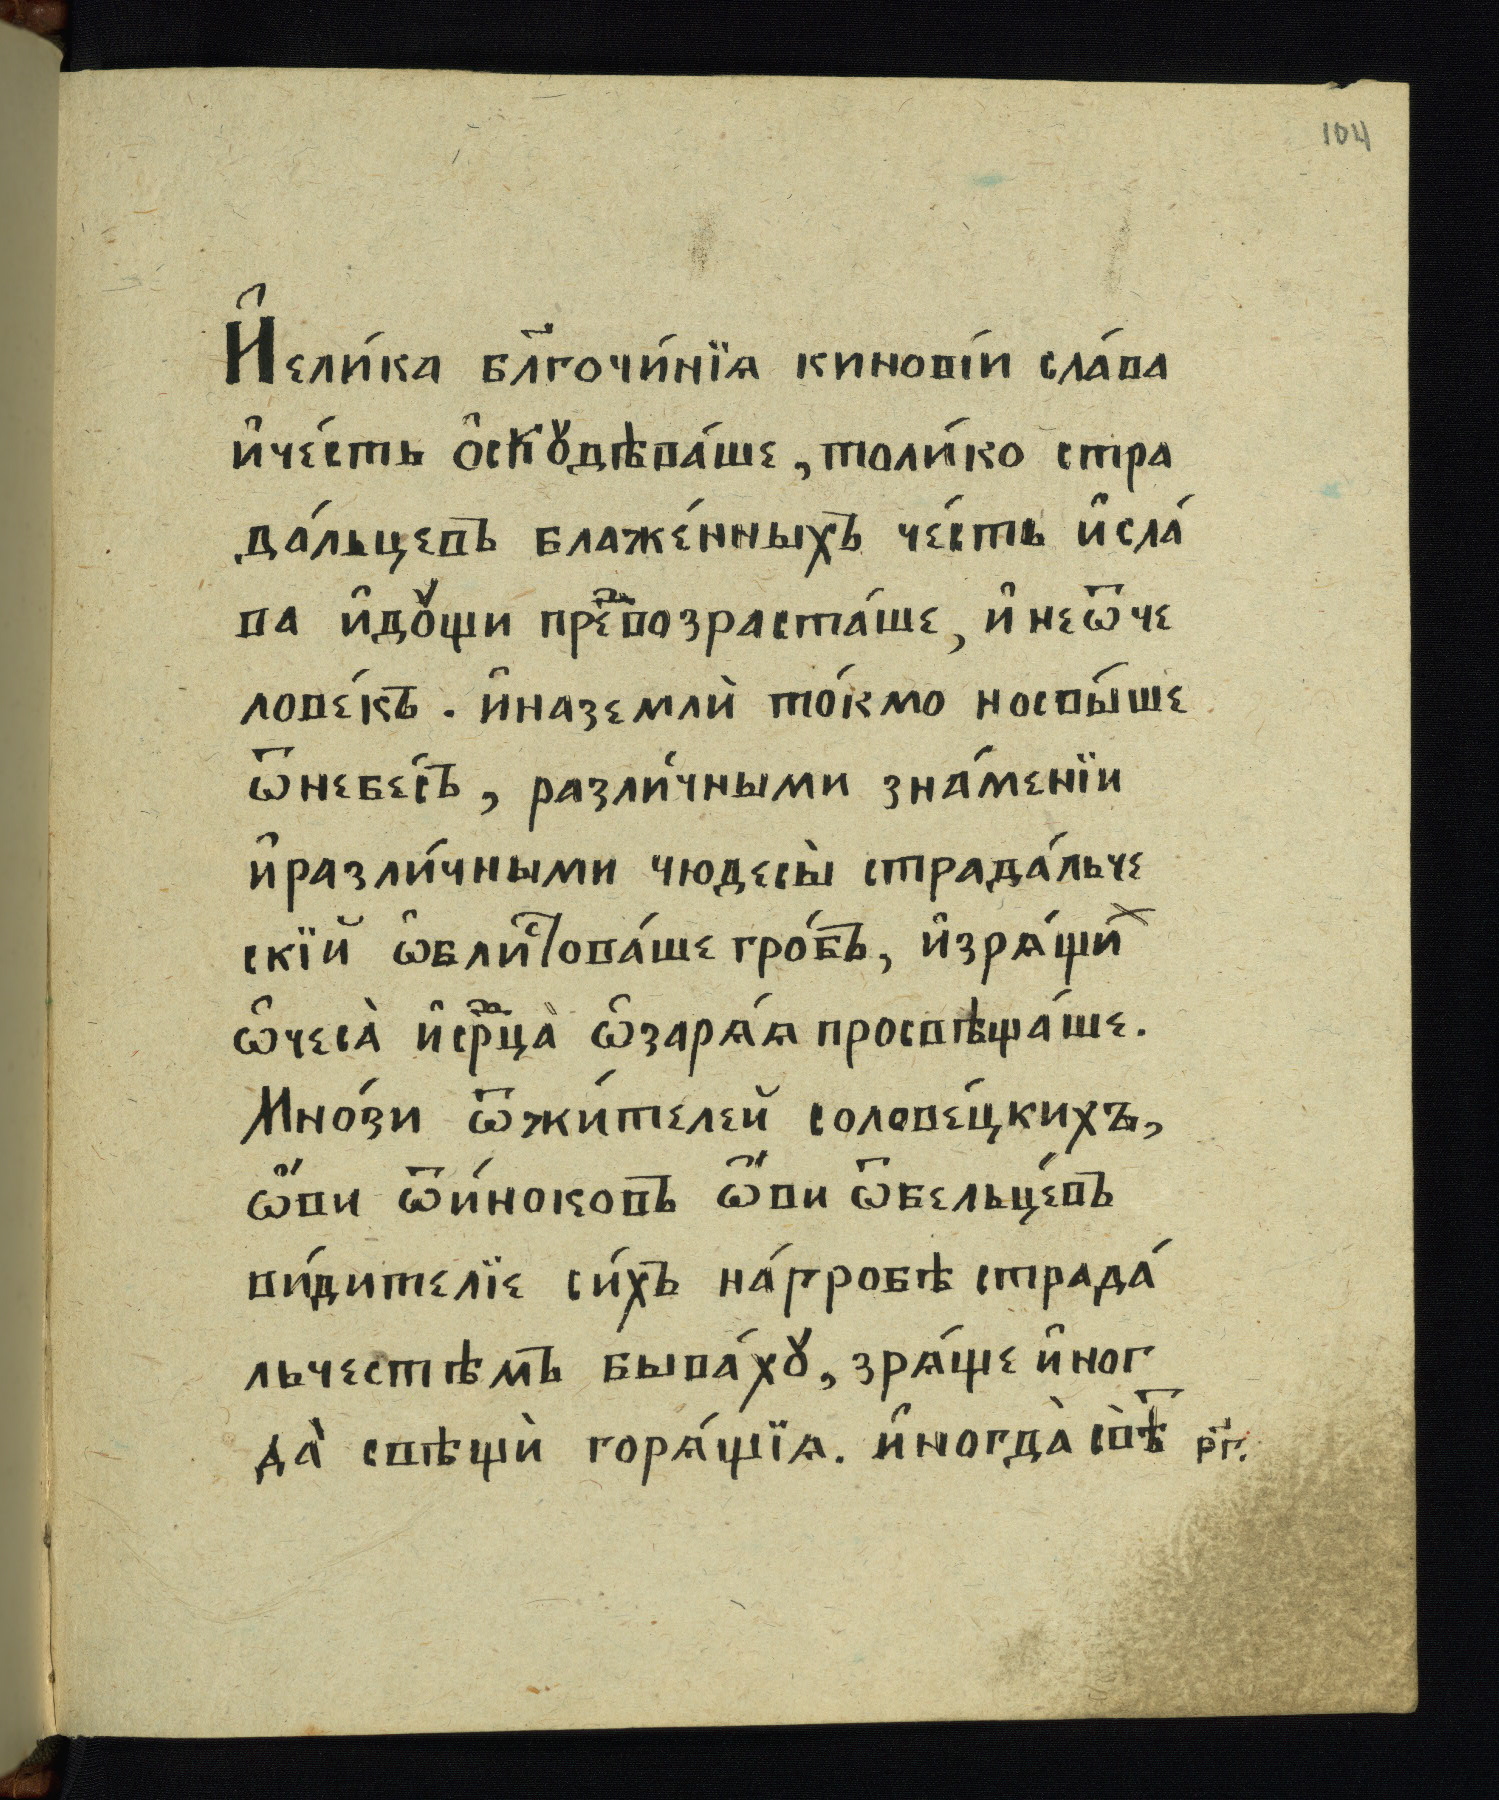 104
И҆ели́ка бл҃гочи́нїѧ кинові́и сла́ва
и҆че́сть ѻ҆скꙋдѣва́ше, толи́ко стра
да́льцевъ блаже́нныхъ че́сть и҆сла́
ва и҆дꙋ́щи пре҇возраста́ше, и҆ неѿче
лове́къ. и҆наземлѝ то́кмо носвы́ше
ѿнебе́съ, разли́чными зна́менїи
и҆разли́чными чюдесы̀ страда́льче
скїй ѡ҆бли́стоваше гро́бъ, и҆зрѧ́щиⷯ
ѡ҆чеса̀ и҆срⷣца̀ ѡ҆зарѧ́ѧ просвѣща́ше.
Мно́зи ѿжи́телей солове́цкихъ,
ѡ҆́ви ѿи́ноковъ ѡ҆́ви ѿбельце́въ
ви́дителїе си́хъ на́гробѣ страда́
льчестѣмъ быва́хꙋ, зрѧ́ще и҆ног
да̀ свѣщѝ горѧ́щїѧ. и҆ногда̀ свѣ̀ⷮ
р҃г.